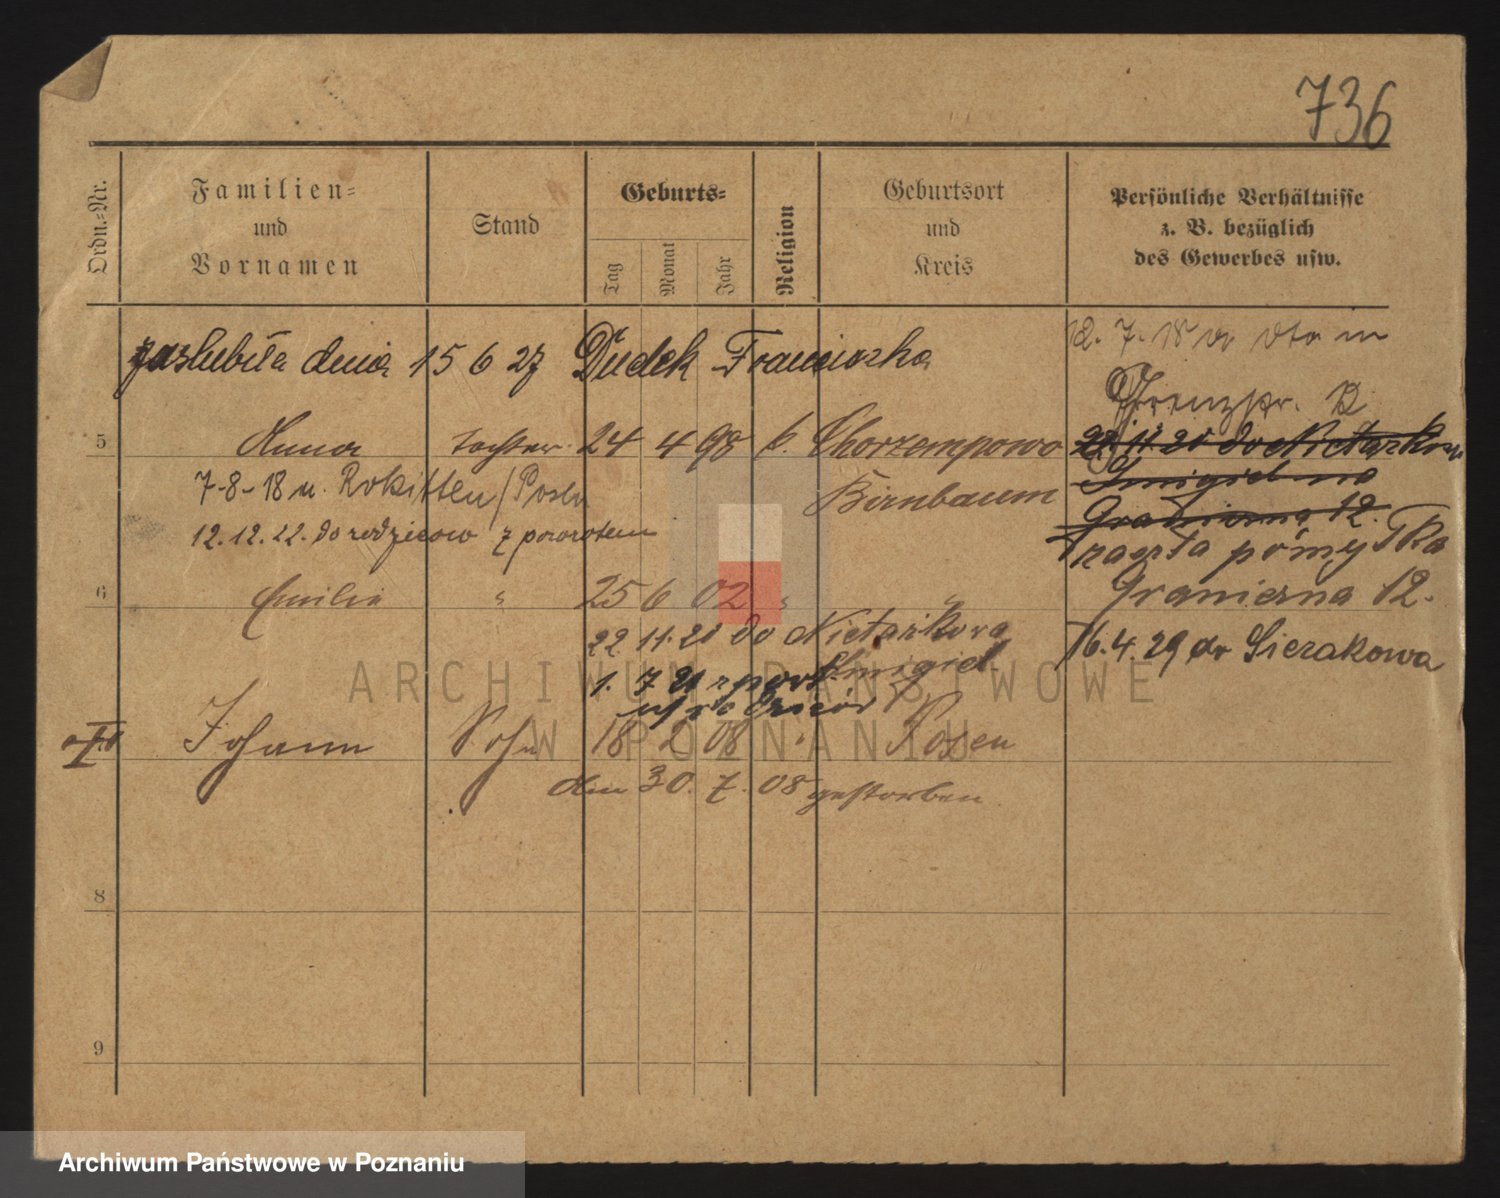 736
Ordn.-Nr.
Familien-
und
Vornamen
Stand
Geburts-
Tag
Monat
Jahr
Religion
Geburtsort
und
Kreis
Persönliche Verhältnisse
z. B. bezüglich
des Gewerbes usw.
zaslubiła dnia 15 6 27 Dudek Franciszka
12. 7. 18
5 Anna Tochter 24 4 98 k. Chorzempowo
22 11 20 do Nietążkowa
Birnbaum
Śmigiel
7-8-18 u. Rokitten / Posen
Graniczna 12.
12.12.22. do rodziców z powrotem
Graniczna 12.
6 Emilie " 25 6 02 " "
22 11 20 do Nietążkowa
Śmigiel
16.4.29 do Sierakowa
1. 7 21 z powrot.
Johann Sohn 18 2 08 " Posen
Am 30. 7. 08 gestorben
8
9
ARCHIWUM PAŃSTWOWE
W POZNANIU
Archiwum Państwowe w Poznaniu